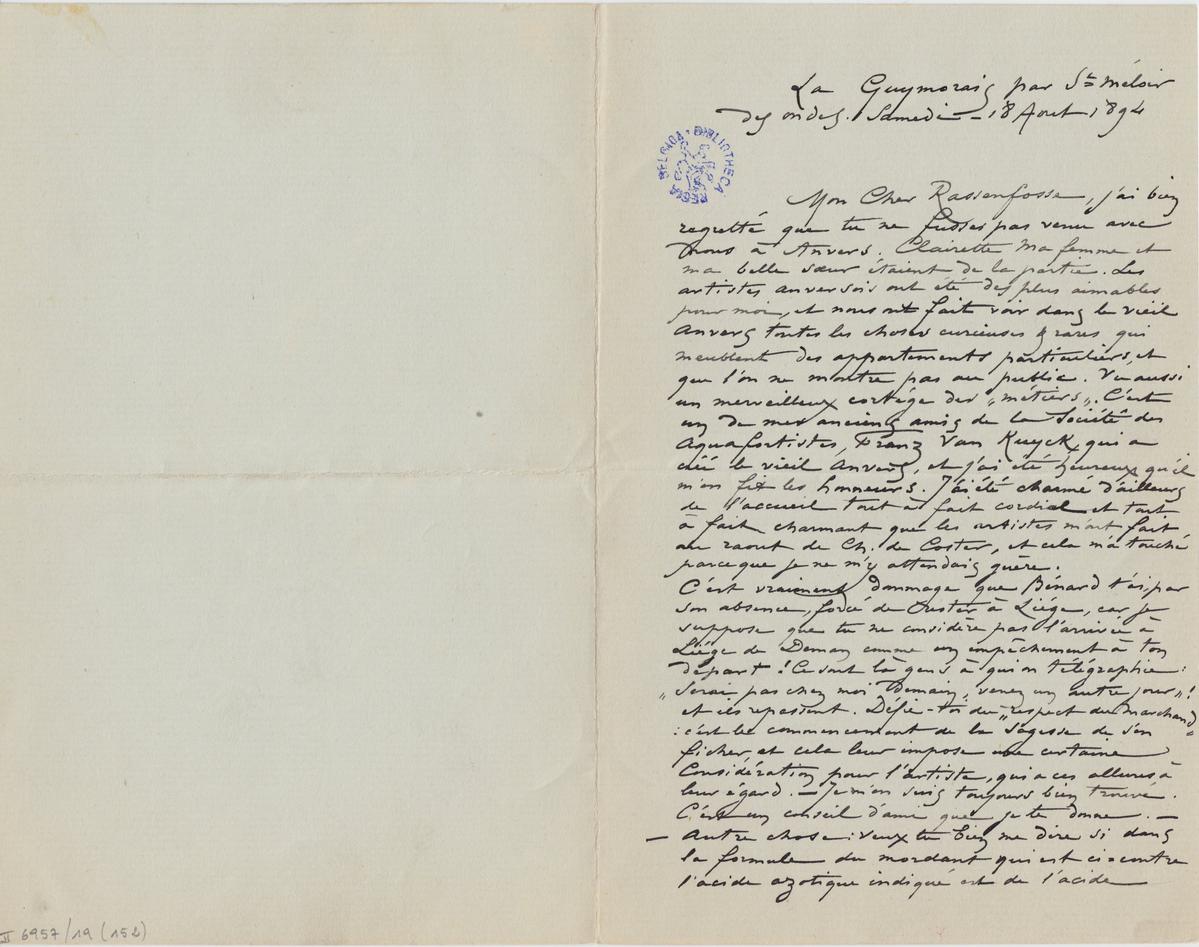 La Guymorais par St Méloir
des ondes. Samedi – 18 Aout 1894
BELGICA · BIBLIOTHECA REGIA
Mon Cher Rassenfosse, j'ai bien
regretté que tu ne fusses pas venu avec
nous à Anvers. Clairette ma femme et
ma belle sœur étaient de la partie. Les
artistes anversois ont été des plus aimables
pour moi, et nous ont fait voir dans le vieil
Anvers toutes les choses curieuses & rares qui
meublent des appartements particuliers, et
que l'on ne montre pas au public. Vu aussi
un merveilleux cortège des „métiers„. C'est
un de mes anciens amis de la Société des
Aquafortistes, Franz Van Kuyck, qui a
créé le vieil Anvers, et j'ai été heureux qu'il
m'en fit les honneurs. J'ai été charmé d'ailleurs
de l'accueil tout à fait cordial et tout
à fait charmant que les artistes m'ont fait
au raout de Ch. de Coster, et cela m'a touché
parce que je ne m'y attendais guère.
C'est vraiment dommage que Bénard t'ai, par
son absence, forcé de rester à Liége, car je
suppose que tu ne considère pas l'arrivée à
Liége de Deman comme un empêchement à ton
départ ! Ce sont là gens à qui on télégraphie :
„Serai pas chez moi Demain, venez un autre jour„!
et ils repassent. Défie-toi du „respect du marchand„
: c'est le commencement de la Sagesse de s'en
ficher, et cela leur impose une certaine
Considération pour l'artiste, qui a ces allures à
leur égard. – Je m'en suis toujours bien trouvé.
C'est un conseil d'ami que je te donne. –
– Autre chose : veux tu bien me dire si dans
la formule du mordant qui est ci-contre
l'acide azotique indiqué est de l'acide
II 6957/19 (152)